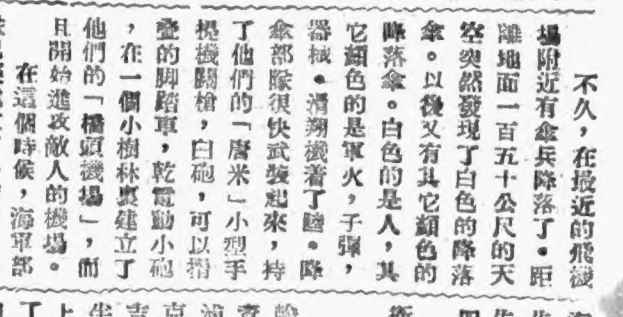 不久，在最近的飛機
場附近有傘兵降落了。距
離地面一百五十公尺的天
空突然發現了白色的降落
傘。以後又有其它顏色的
降落傘。白色的是人，其
它顏色的是軍火，子彈，
器械。滑翔機着了陸。降
傘部隊很快武裝起來，持
了他們的「唐米」小型手
提機關槍，臼砲，可以摺
疊的脚踏車，乾電動小砲
，在一個小樹林裏建立了
他們的「橋頭機場」，而
且開始進攻敵人的機場。
在這個時候，海軍部